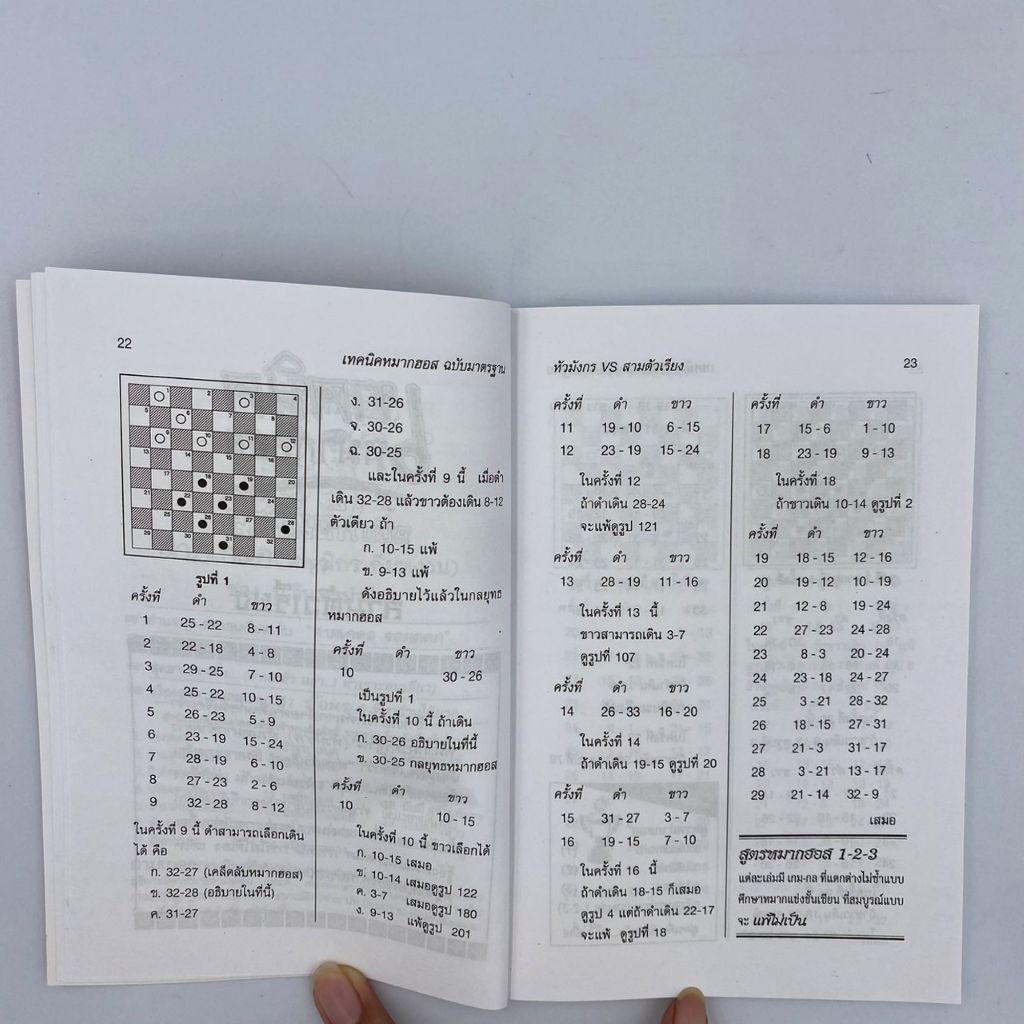 22
เทคนิคหมากฮอส ฉบับมาตรฐาน
1 2 3 4
5 6 7 8
9 10 11 12
18 19 20
21 22 23 24
25 26 27 28
29 30 31 32
รูปที่ 1
ครั้งที่ ดำ ขาว
1 25 - 22 8 - 11
2 22 - 18 4 - 8
3 29 - 25 7 - 10
4 25 - 22 10 - 15
5 26 - 23 5 - 9
6 23 - 19 15 - 24
7 28 - 19 6 - 10
8 27 - 23 2 - 6
9 32 - 28 8 - 12
ในครั้งที่ 9 นี้ ดำสามารถเลือกเดิน
ได้ คือ
ก. 32-27 (เคล็ดลับหมากฮอส)
ข. 32-28 (อธิบายในที่นี้)
ค. 31-27
ง. 31-26
จ. 30-26
ฉ. 30-25
และในครั้งที่ 9 นี้ เมื่อดำ
เดิน 32-28 แล้วขาวต้องเดิน 8-12
ตัวเดียว ถ้า
ก. 10-15 แพ้
ข. 9-13 แพ้
ดังอธิบายไว้แล้วในกลยุทธ
หมากฮอส
ครั้งที่ ดำ ขาว
10 30 - 26
เป็นรูปที่ 1
ในครั้งที่ 10 นี้ ถ้าเดิน
ก. 30-26 อธิบายในที่นี้
ข. 30-25 กลยุทธหมากฮอส
ครั้งที่ ดำ ขาว
10 10 - 15
ในครั้งที่ 10 นี้ ขาวเลือกได้
ก. 10-15 เสมอ
ข. 10-14 เสมอดูรูป 122
ค. 3-7 เสมอดูรูป 180
ง. 9-13 แพ้ดูรูป 201
หัวมังกร VS สามตัวเรียง
23
ครั้งที่ ดำ ขาว
11 19 - 10 6 - 15
12 23 - 19 15 - 24
ในครั้งที่ 12
ถ้าดำเดิน 28-24
จะแพ้ดูรูป 121
ครั้งที่ ดำ ขาว
13 28 - 19 11 - 16
ในครั้งที่ 13 นี้
ขาวสามารถเดิน 3-7
ดูรูปที่ 107
ครั้งที่ ดำ ขาว
14 26 - 33 16 - 20
ในครั้งที่ 14
ถ้าดำเดิน 19-15 ดูรูปที่ 20
ครั้งที่ ดำ ขาว
15 31 - 27 3 - 7
16 19 - 15 7 - 10
ในครั้งที่ 16 นี้
ถ้าดำเดิน 18-15 ก็เสมอ
ดูรูป 4 แต่ถ้าดำเดิน 22-17
จะแพ้ ดูรูปที่ 18
ครั้งที่ ดำ ขาว
17 15 - 6 1 - 10
18 23 - 19 9 - 13
ในครั้งที่ 18
ถ้าขาวเดิน 10-14 ดูรูปที่ 2
ครั้งที่ ดำ ขาว
19 18 - 15 12 - 16
20 19 - 12 10 - 19
21 12 - 8 19 - 24
22 27 - 23 24 - 28
23 8 - 3 20 - 24
24 23 - 18 24 - 27
25 3 - 21 28 - 32
26 18 - 15 27 - 31
27 21 - 3 31 - 17
28 3 - 21 13 - 17
29 21 - 14 32 - 9
เสมอ
สูตรหมากฮอส 1-2-3
แต่ละเล่มมี เกม-กล ที่แตกต่างไม่ซ้ำแบบ
ศึกษาหมากแข่งชั้นเซียน ที่สมบูรณ์แบบ
จะ แพ้ไม่เป็น